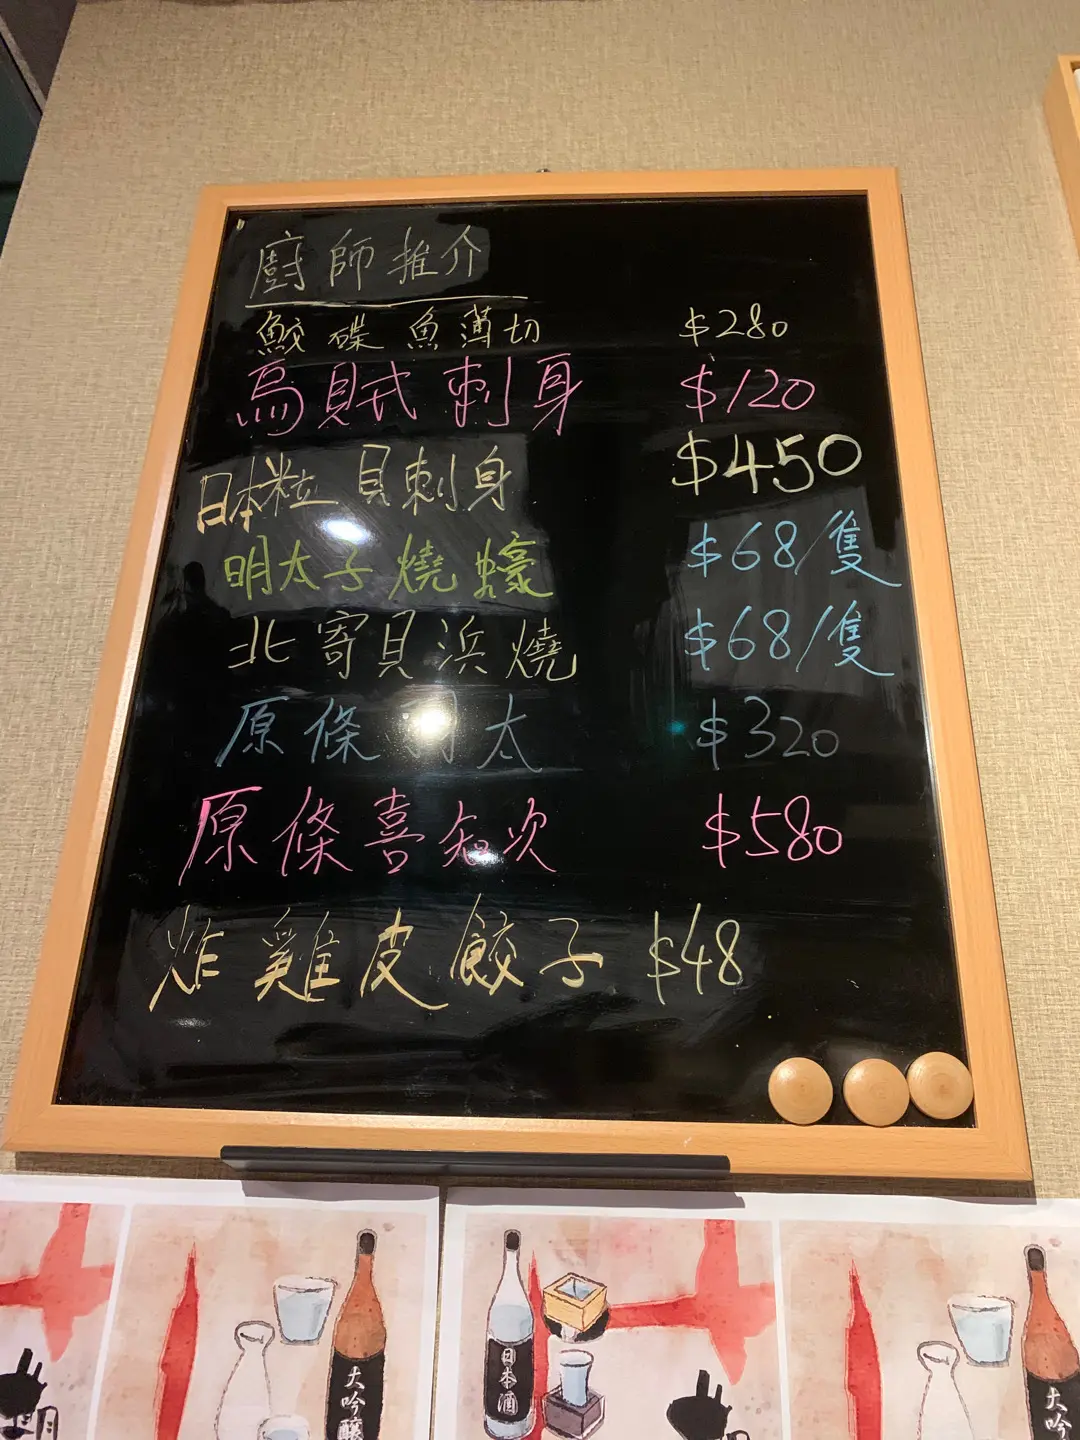 廚師推介
鮫碟魚薄切 $280
烏賊式刺身 $120
日本粒貝刺身 $450
明太子燒蠔 $68/隻
北寄貝浜燒 $68/隻
原條 太 $320
原條喜知次 $580
炸雞皮餃子 $48
大吟釀
日本酒
大吟